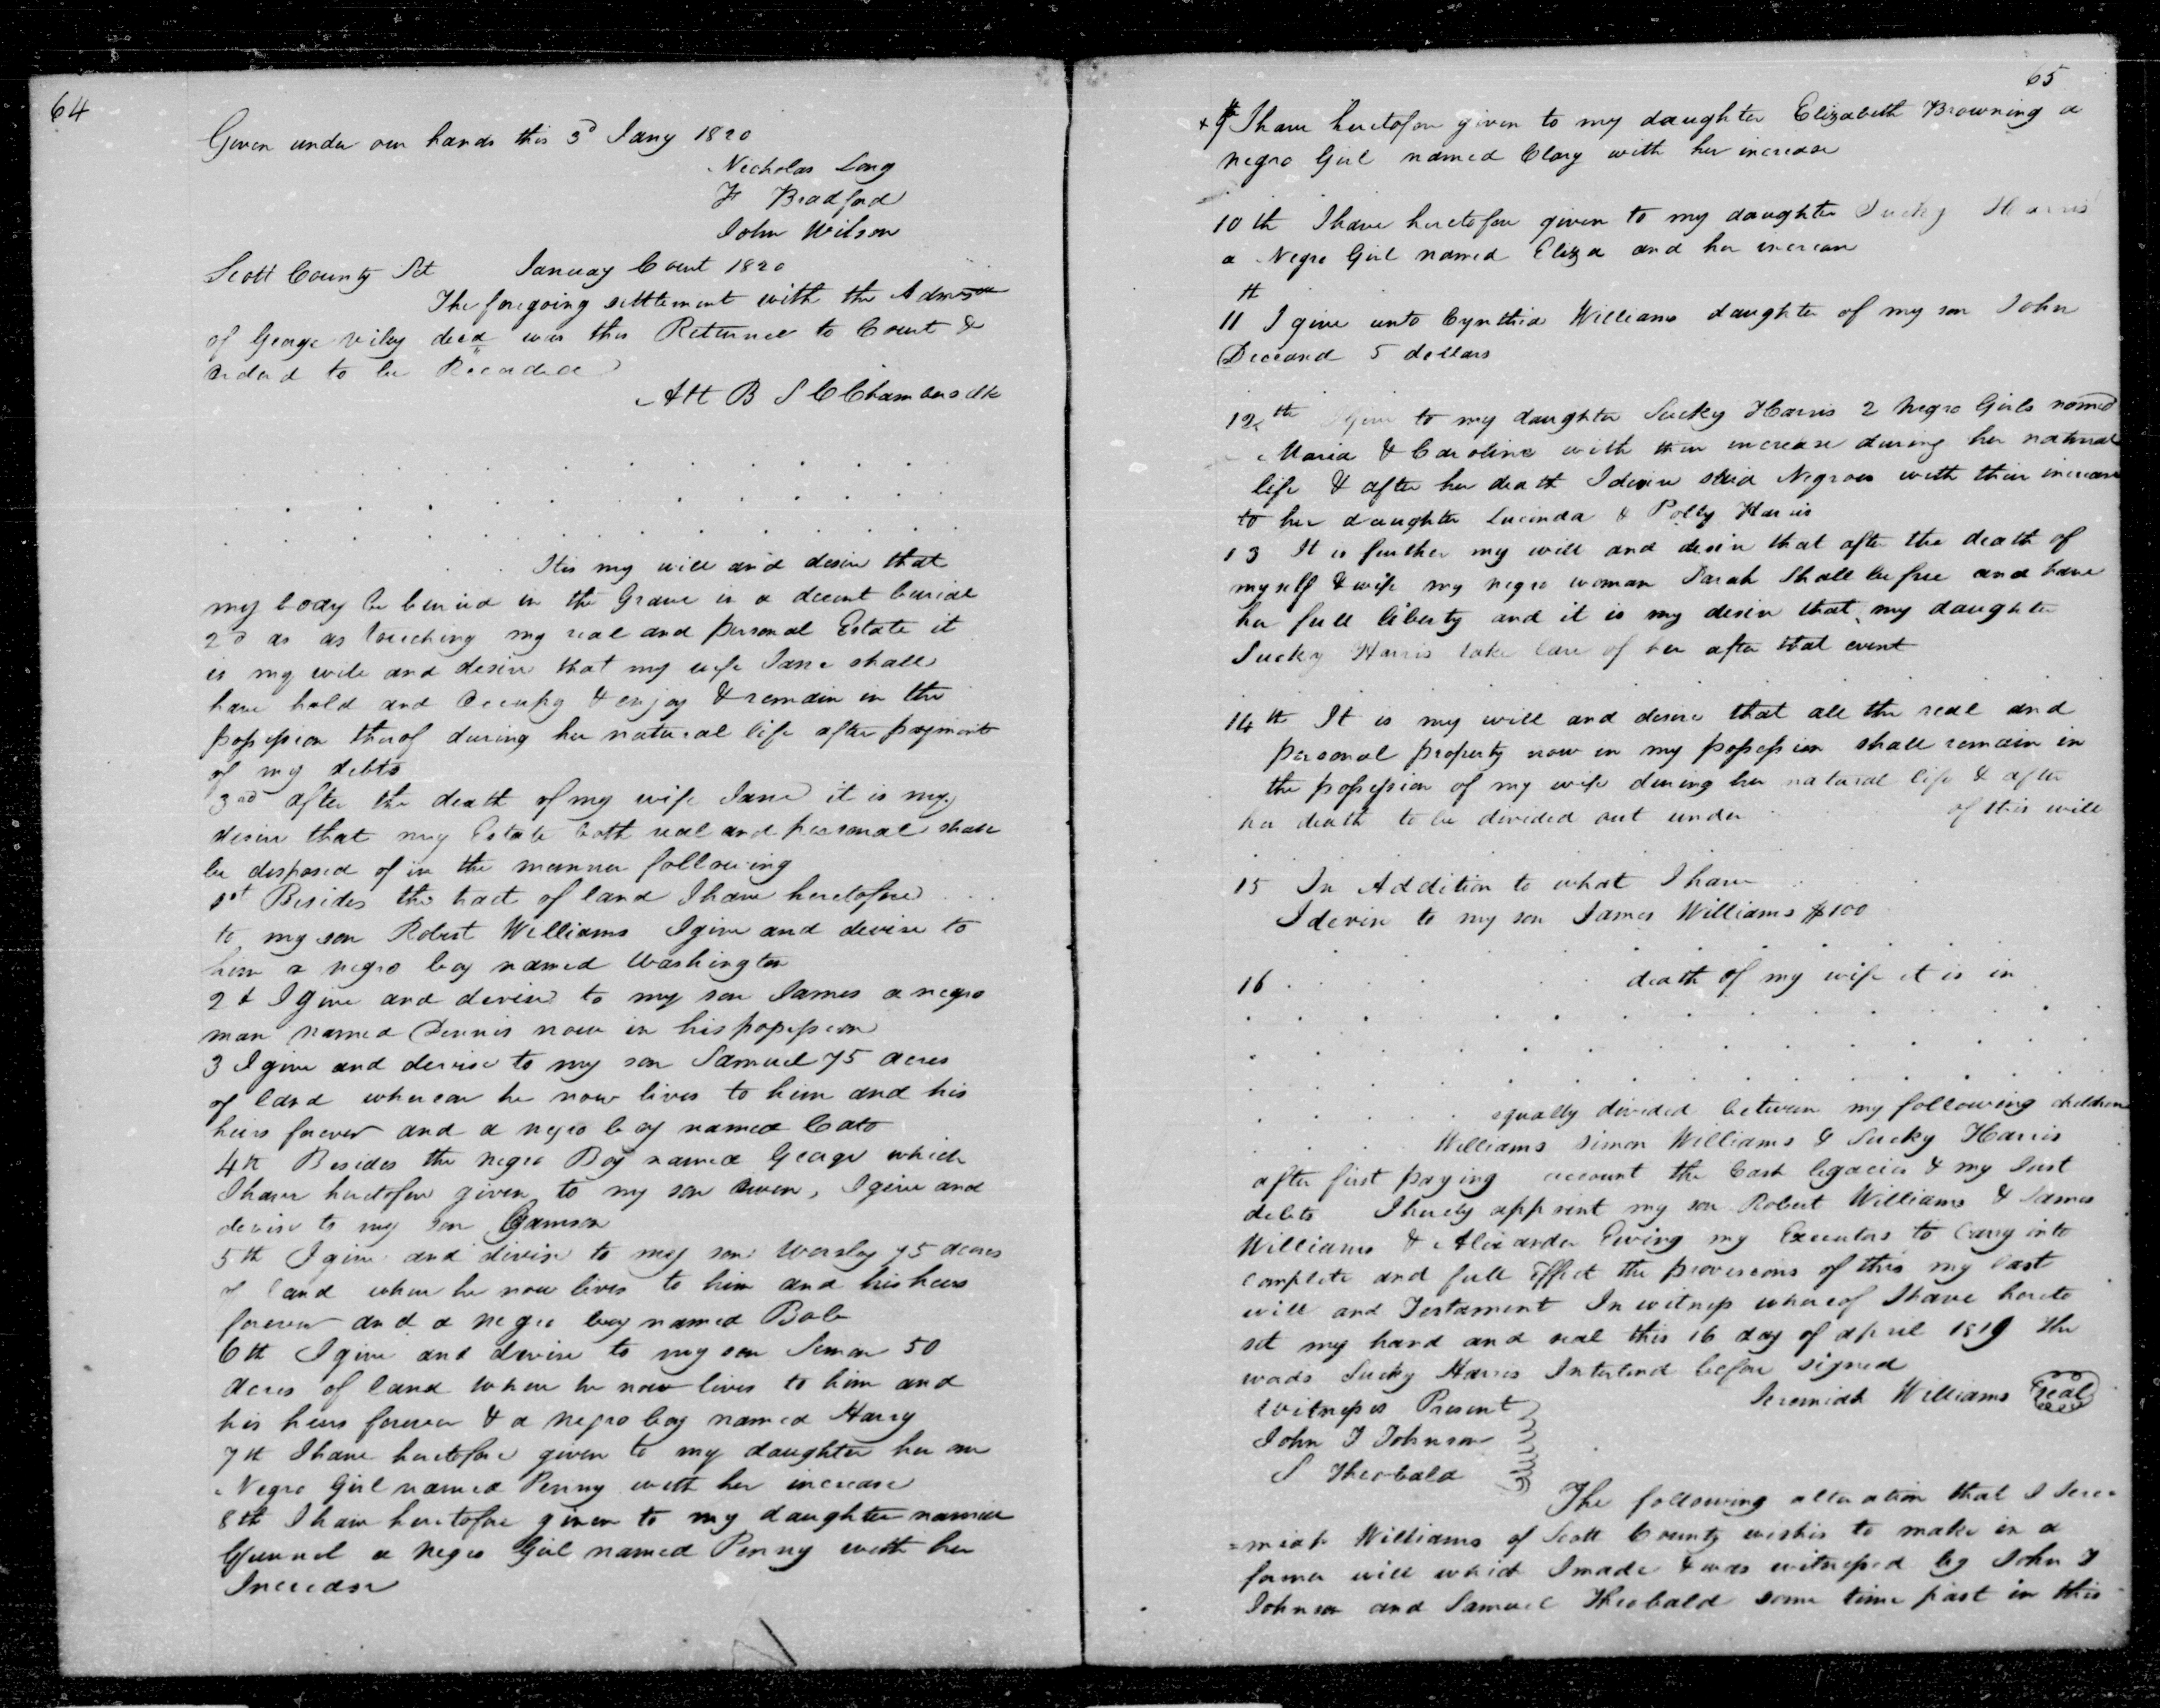 64
Given under our hands this 3d Jany 1820
Nicholas Long
F Bradford
John Wilson
Scott County Sct January Court 1820
The foregoing settlement with the Admr
of George Viley decd was this Returned to Court &
ordered to be Recorded
Att B S C Chambers clk
Itis my will and desire that
my body be buried in the Grave in a decent burial
2d as as touching my real and personal Estate it
is my will and desire that my wife Jane shall
have hold and Occupy & enjoy & remain in the
possession thereof during her natural life after payment
of my debts
3rd after the death of my wife Jane it is my
desire that my Estate both real and personal shall
be disposed of in the manner following
1st Besides the tract of land I have heretofore
to my son Robert Williams I give and devise to
him a negro boy named Washington
2d I give and devise to my son James a negro
man named Dennis now in his possession
3 I give and devise to my son Samuel 75 acres
of land whereon he now lives to him and his
heirs forever and a negro boy named Cato
4th Besides the negro Boy named George which
I have heretofore given to my son , I give and
devise to my son
5th I give and devise to my son Worsley 75 acres
of land where he now lives to him and his heirs
forever and a negro boy named Bob
6th I give and devise to my son Simon 50
acres of land where he now lives to him and
his heirs forever & a negro boy named Harry
7th I have heretofore given to my daughter her one
Negro Girl named Penny with her increase
8th I have heretofore given to my daughter
a negro Girl named Penny with her
Increase
65
9th I have heretofore given to my daughter Elizabeth Browning a
negro Girl named Clary with her increase
10th I have heretofore given to my daughter Sucky Harris
a Negro Girl named Eliza and her increase
11th I give unto Cynthia Williams daughter of my son John
Deceased 5 dollars
12th I give to my daughter Sucky Harris 2 Negro Girls named
Maria & Caroline with their increase during her natural
life & after her death I desire said Negroes with their increase
to her daughter Lucinda & Polly Harris
13 It is further my will and desire that after the death of
myself & wife my negro woman Sarah Shall be free and have
her full liberty and it is my desire that my daughter
Sucky Harris take care of her after that event
14th It is my will and desire that all the real and
personal property now in my possession shall remain in
the possession of my wife during her natural life & after
her death to be divided out under of this will
15 In Addition to what I have
I devise to my son James Williams $100
16 death of my wife it is in
equally divided between my following children
Williams Simon Williams & Sucky Harris
after first paying account the Cash legacies & my Just
debts I hereby appoint my son Robert Williams & James
Williams & Alexander Ewing my Executors to Carry into
complete and full Effect the provisions of this my last
will and Testament In witness whereof I have hereto
set my hand and seal this 16 day of april 1819 the
words Sucky Harris Interlined before signed
Witnesses Present Jeremiah Williams Seal
John T Johnson
S Theobald
The following alteration that I Jere=
=miah Williams of Scott County wishes to make in a
former will which I made & was witnessed by John T
Johnson and Samuel Theobald some time past in this